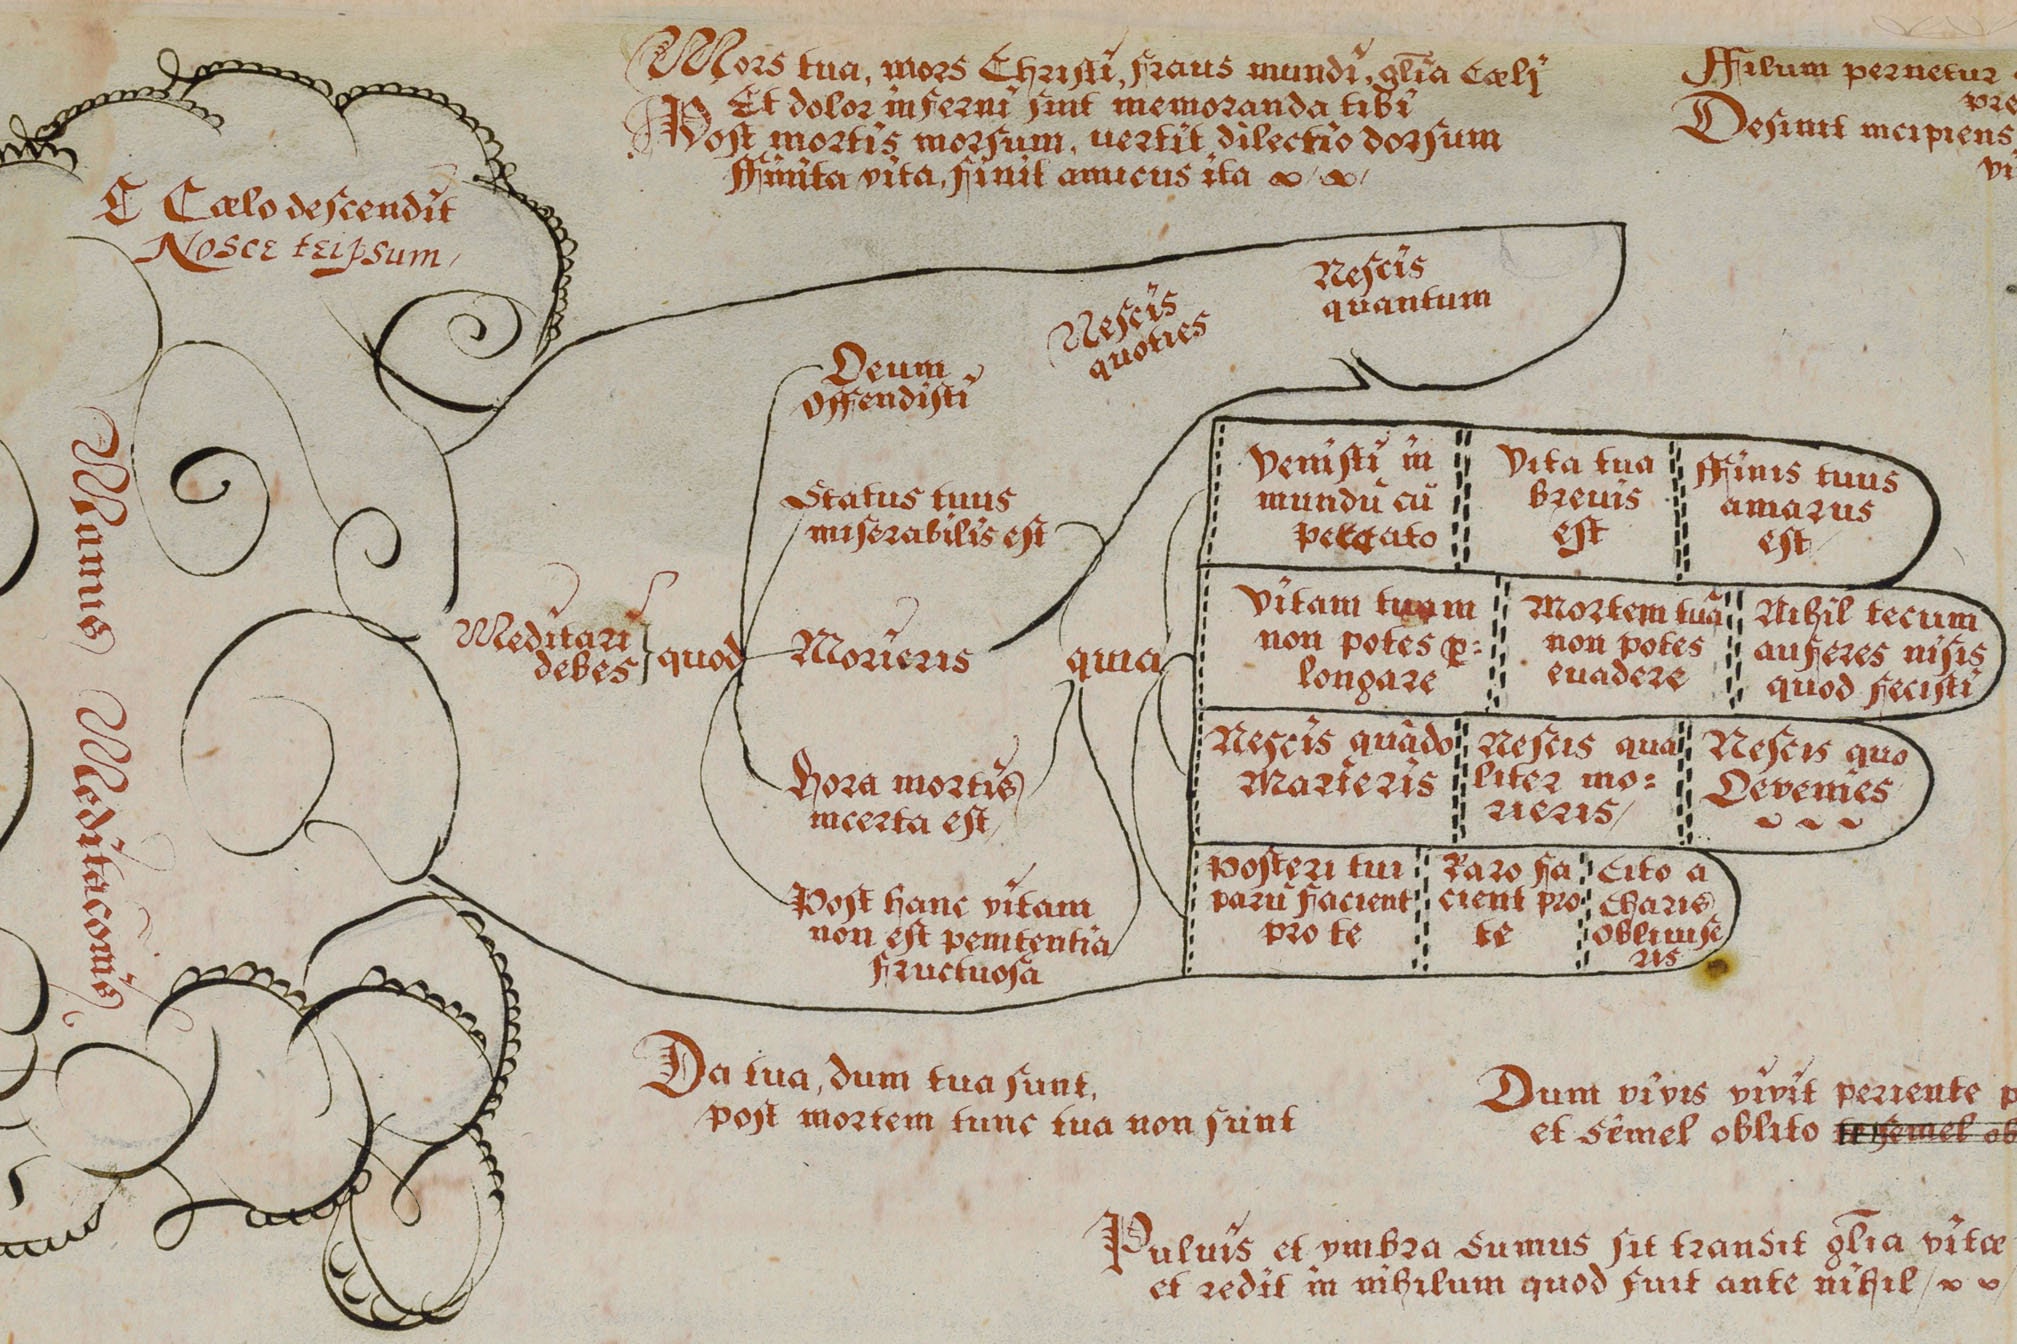 Mors tua, mors Christi, fraus mundi, glĩa Cœlj
Et dolor inferni sint memoranda tibi
Post mortis morsum, vertit dilectio dorsum
ffinita vita, finit amicus ita
ffilum pernetur
pre
Desinit incipiens
vi
E Cœlo descendit
Nosce teipsum
Manus Meditaconis
Meditari
debes
quod
Deum
offendisti
Nescis
quoties
Nescis
quantum
Status tuus
miserabilis est
Morieris
Hora mortis
incerta est
Post hanc vitam
non est penitentia
fructuosa
quia
Venisti in
mundũ cũ
peccato
Vita tua
brevis
est
ffinis tuus
amarus
est
Vitam tuam
non potes p:
longare
Mortem tuã
non potes
euadere
Nihil tecum
auferes nisis
quod fecisti
Nescis quãdo
Marieris
Nescis qua
liter mo:
rieris
Nescis quo
Devenies
Posteri tui
parũ facient
pro te
Raro fa
cient pro
te
Cito a
Charis
obliuisc
ris
Da tua, dum tua sunt,
post mortem tunc tua non sunt
Dum vivis vivit periente p
et semel oblito te semel ob
Puluis et vmbra sumus sit transit glĩa vitæ
et redit in nihilum quod fuit ante nihil